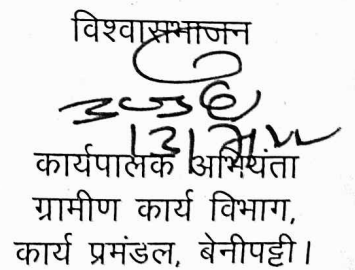 विश्वासभाजन
कार्यपालक अभियंता
ग्रामीण कार्य विभाग,
कार्य प्रमंडल, बेनीपट्टी।